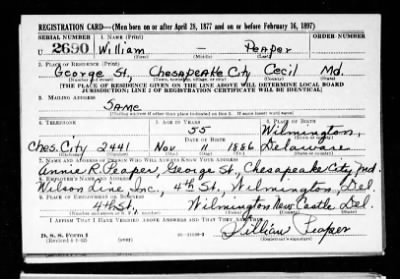 REGISTRATION CARD—(Men born on or after April 28, 1877 and on or before February 16, 1897)
SERIAL NUMBER 1. NAME (Print)
U 2690 William — Peaper
2. PLACE OF RESIDENCE (Print)
George St, Chesapeake City Cecil Md.
[THE PLACE OF RESIDENCE GIVEN ON THE LINE ABOVE WILL DETERMINE LOCAL BOARD
JURISDICTION; LINE 2 OF REGISTRATION CERTIFICATE WILL BE IDENTICAL]
3. MAILING ADDRESS
Same
[Mailing address if other than place indicated on line 2. If same insert word same]
4. TELEPHONE 5. AGE IN YEARS 6. PLACE OF BIRTH
55 Wilmington,
DATE OF BIRTH
Ches. City 2441 Nov 11 1886 Delaware
7. NAME AND ADDRESS OF PERSON WHO WILL ALWAYS KNOW YOUR ADDRESS
Annie R. Peaper, George St, Chesapeake City, Md.
8. EMPLOYER'S NAME AND ADDRESS
Wilson Line, Inc., 4th St, Wilmington, Del.
9. PLACE OF EMPLOYMENT OR BUSINESS
4th St, Wilmington New Castle Del.
I AFFIRM THAT I HAVE VERIFIED ABOVE ANSWERS AND THAT THEY ARE TRUE.
D. S. S. Form 1
William Peaper